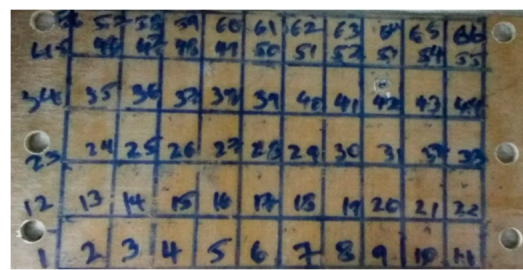 56 57 58 59 60 61 62 63 64 65 66
45 46 47 48 49 50 51 52 53 54 55
34 35 36 37 38 39 40 41 42 43 44
23 24 25 26 27 28 29 30 31 32 33
12 13 14 15 16 17 18 19 20 21 22
1 2 3 4 5 6 7 8 9 10 11